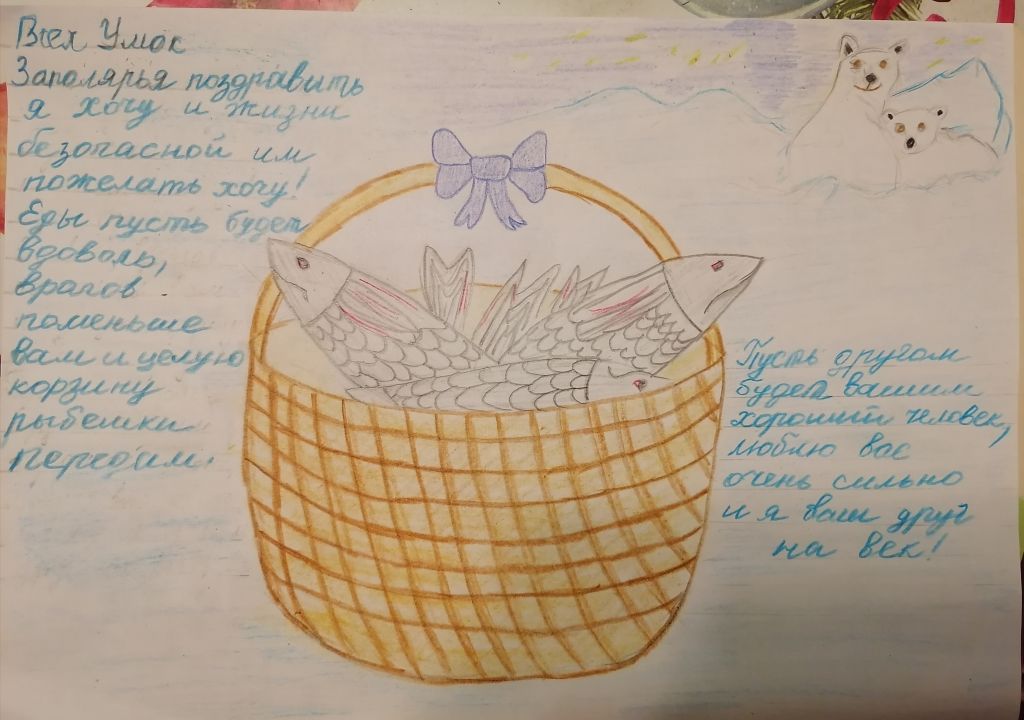 Всех Умок
Заполярья поздравить
я хочу и жизни
безопасной им
пожелать хочу!
Еды пусть будет
вдоволь,
врагов
поменьше
вам и целую
корзину
рыбёшки
передам.
Пусть другом
будет вашим
хороший человек,
люблю вас
очень сильно
и я ваш друг
на век!